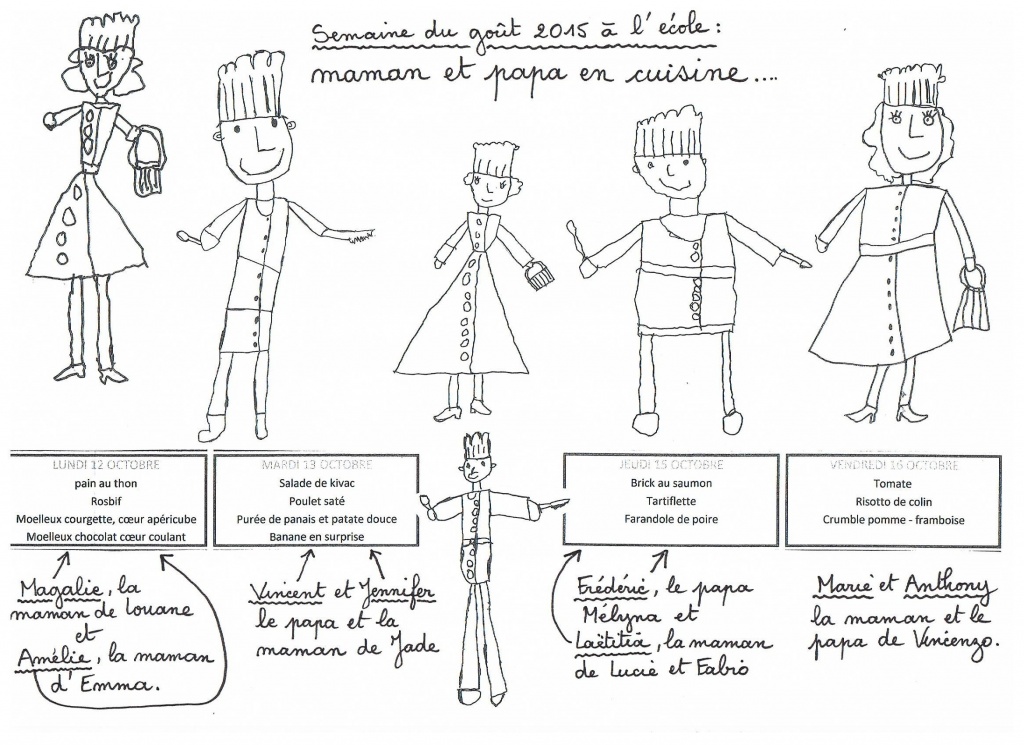 Semaine du goût 2015 à l'école :
maman et papa en cuisine....
LUNDI 12 OCTOBRE
pain au thon
Rosbif
Moelleux courgette, cœur apéricube
Moelleux chocolat cœur coulant
MARDI 13 OCTOBRE
Salade de kivac
Poulet saté
Purée de panais et patate douce
Banane en surprise
JEUDI 15 OCTOBRE
Brick au saumon
Tartiflette
Farandole de poire
VENDREDI 16 OCTOBRE
Tomate
Risotto de colin
Crumble pomme - framboise
Magalie, la
maman de Louane
et
Amélie, la maman
d'Emma.
Vincent et Jennifer
le papa et la
maman de Jade
Frédéric, le papa
Mélyna et
Laëtitia, la maman
de Lucie et Fabio
Marie et Anthony
la maman et le
papa de Vincenzo.